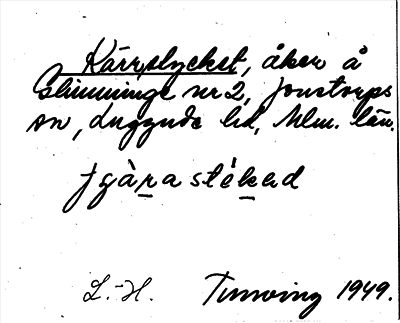 Kärrstycket, åker å
Slimminge nr 2, Jonstorps
sn, Luggude hd, Mlm. län.
L.-H. Tunving 1949.